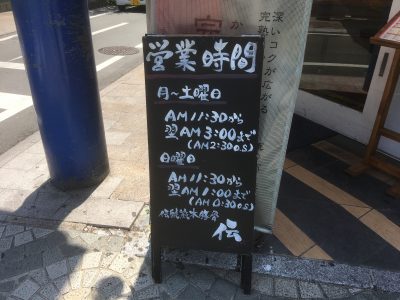 営業時間
月〜土曜日
AM11:30から
翌AM3:00まで
(AM2:30o.s)
日曜日
AM11:30から
翌AM1:00まで
(AM0:30o.s)
伝
深いコクが広がる
完熟